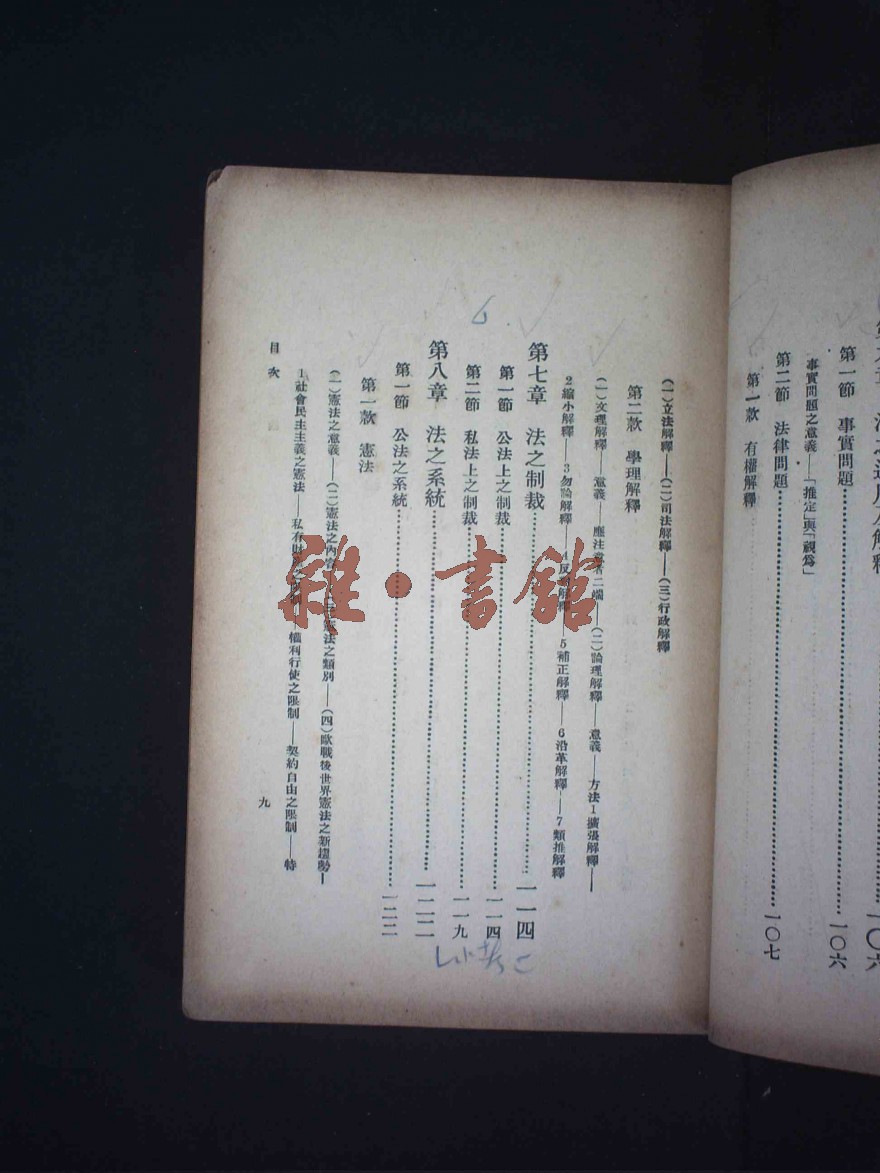 第一節 事實問題………一〇六
事實問題之意義——「推定」與「視爲」
第二節 法律問題………一〇七
第一款 有權解釋
(一)立法解釋——(二)司法解釋——(三)行政解釋
第二款 學理解釋
(一)文理解釋——意義——應注意者二端——(二)論理解釋——意義——方法1擴張解釋——
2縮小解釋——3勿論解釋——4反對解釋——5補正解釋——6沿革解釋——7類推解釋
第七章 法之制裁………一一四
第一節 公法上之制裁………一一四
第二節 私法上之制裁………一一九
第八章 法之系統………一二二
第一節 公法之系統………一二二
第一款 憲法
(一)憲法之意義——(二)憲法之內容——(三)憲法之類別——(四)歐戰後世界憲法之新趨勢—
1社會民主主義之憲法——私有財產之限制——權利行使之限制——契約自由之限制——特
目次
九
雜·書館